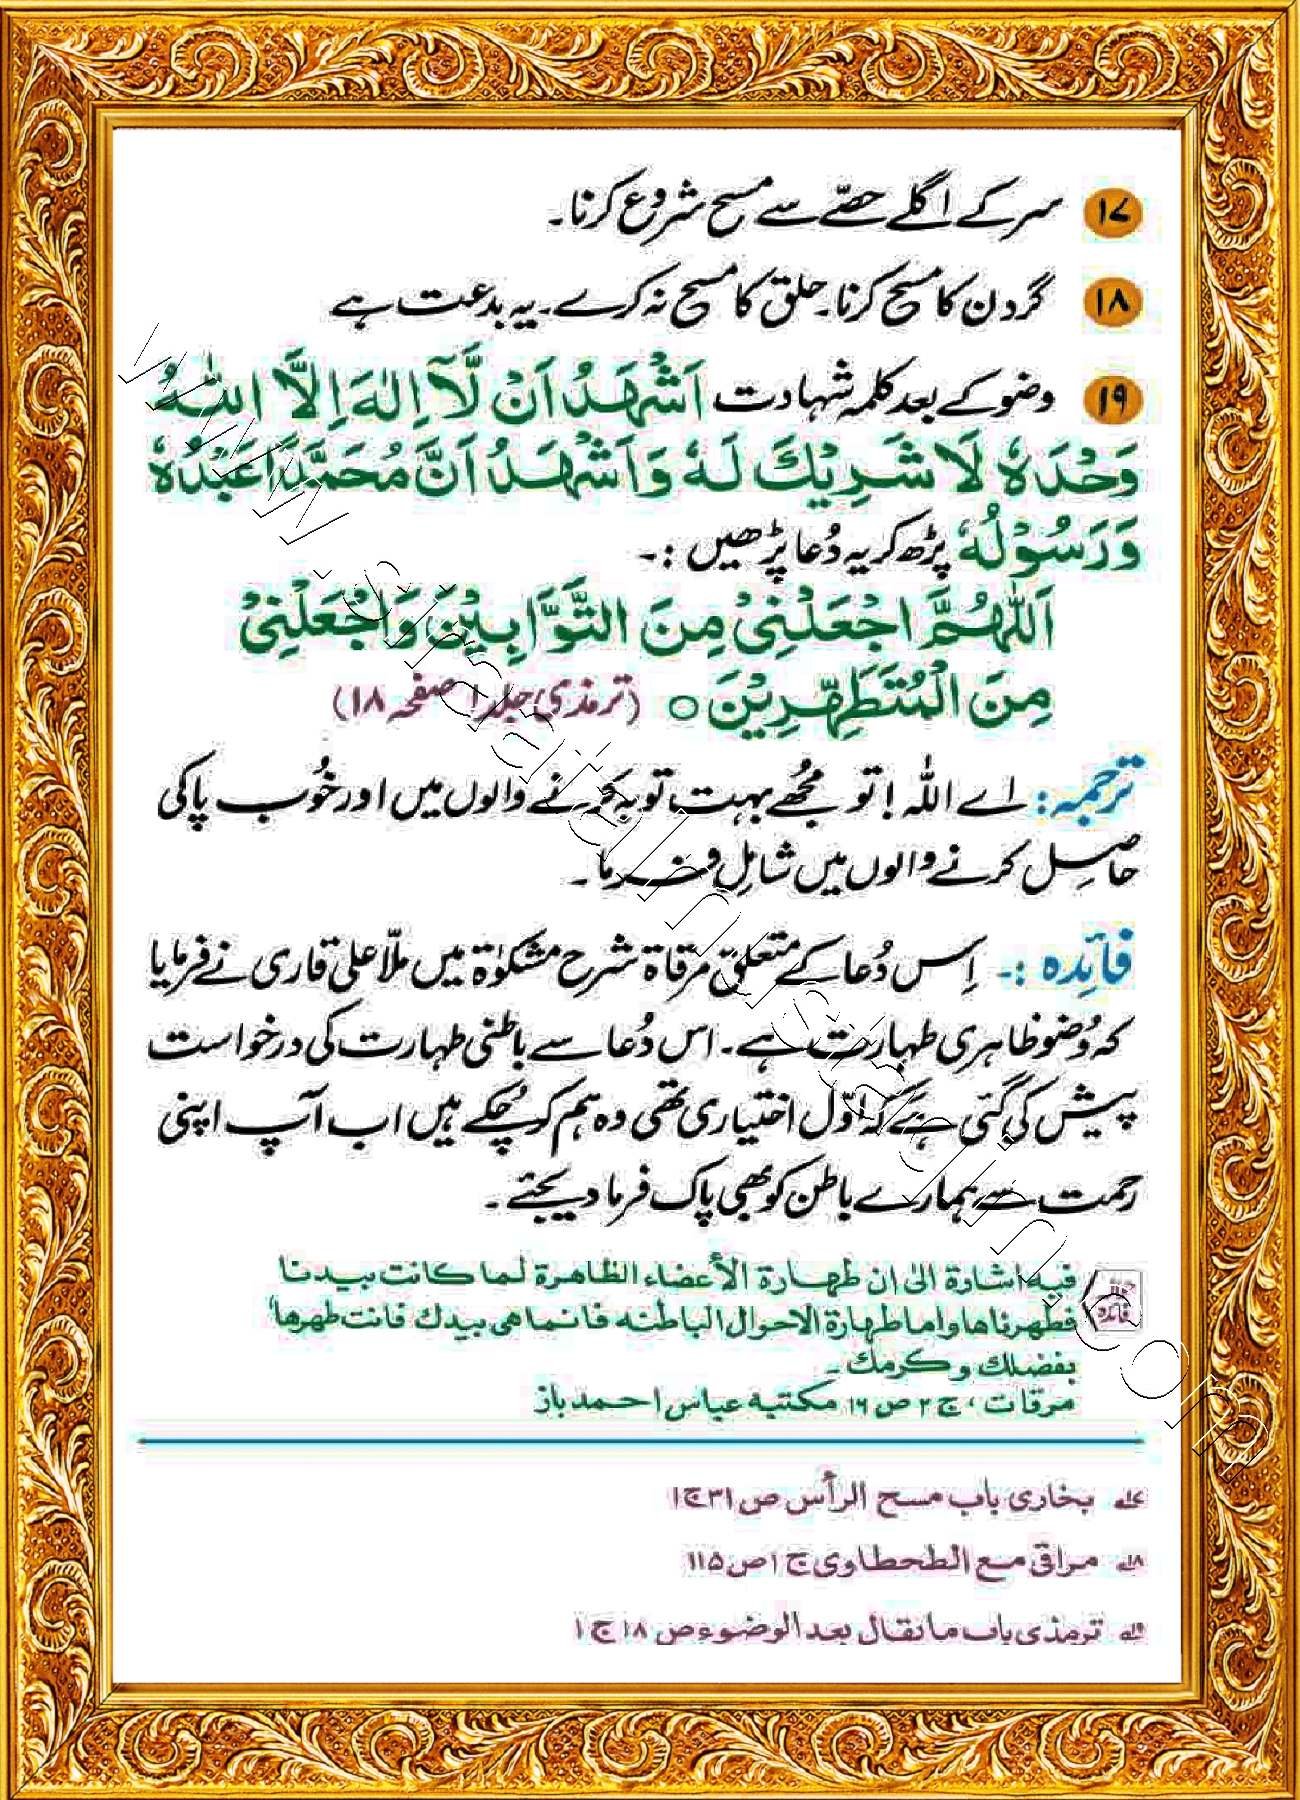 ۱۷ سر کے اگلے حصّے سے مسح شروع کرنا۔
۱۸ گردن کا مسح کرنا۔ حلق کا مسح نہ کرے۔ یہ بدعت ہے
۱۹ وضو کے بعد کلمہ شہادت اَشْهَدُ اَنْ لَّآ اِلٰهَ اِلَّا اللّٰهُ
وَحْدَهٗ لَا شَرِيْكَ لَهٗ وَاَشْهَدُ اَنَّ مُحَمَّدًا عَبْدُهٗ
وَرَسُوْلُهٗ پڑھ کر یہ دُعا پڑھیں :۔
اَللّٰهُمَّ اجْعَلْنِيْ مِنَ التَّوَّابِيْنَ وَاجْعَلْنِيْ
مِنَ الْمُتَطَهِّرِيْنَ ○ (ترمذی جلد ۱ صفحہ ۱۸)
ترجمہ: اے اللہ! تو مجُھے بہت توبہ کرنے والوں میں اور خُوب پاکی
حاصِل کرنے والوں میں شامِل فرما۔
فائدہ :۔ اِس دُعا کے متعلق مرقاۃ شرح مشکوٰۃ میں ملّا علی قاری نے فرمایا
کہ وُضو ظاہری طہارت ہے۔ اس دُعا سے باطنی طہارت کی درخواست
پیش کی گئی ہے کہ اوّل اختیاری تھی وہ ہم کر چُکے ہیں اب آپ اپنی
رحمت سے ہمارے باطن کو بھی پاک فرما دیجئے۔
فيه اشارة الى ان طهارة الأعضاء الظاهرة لما كانت بيدنا
فطهرناها واما طهارة الاحوال الباطنه فانما هى بيدك فانت طهرها
بفضلك وكرمك۔
مرقات، ج ۲ ص ۱۶ مكتبه عباس احمد باز
۱۷ بخاری باب مسح الرأس ص ۳۱ ج ۱
۱۸ مراقی مع الطحطاوی ج ۱ ص ۱۱۵
۱۹ ترمذی باب ما یقال بعد الوضوء ص ۱۸ ج ۱